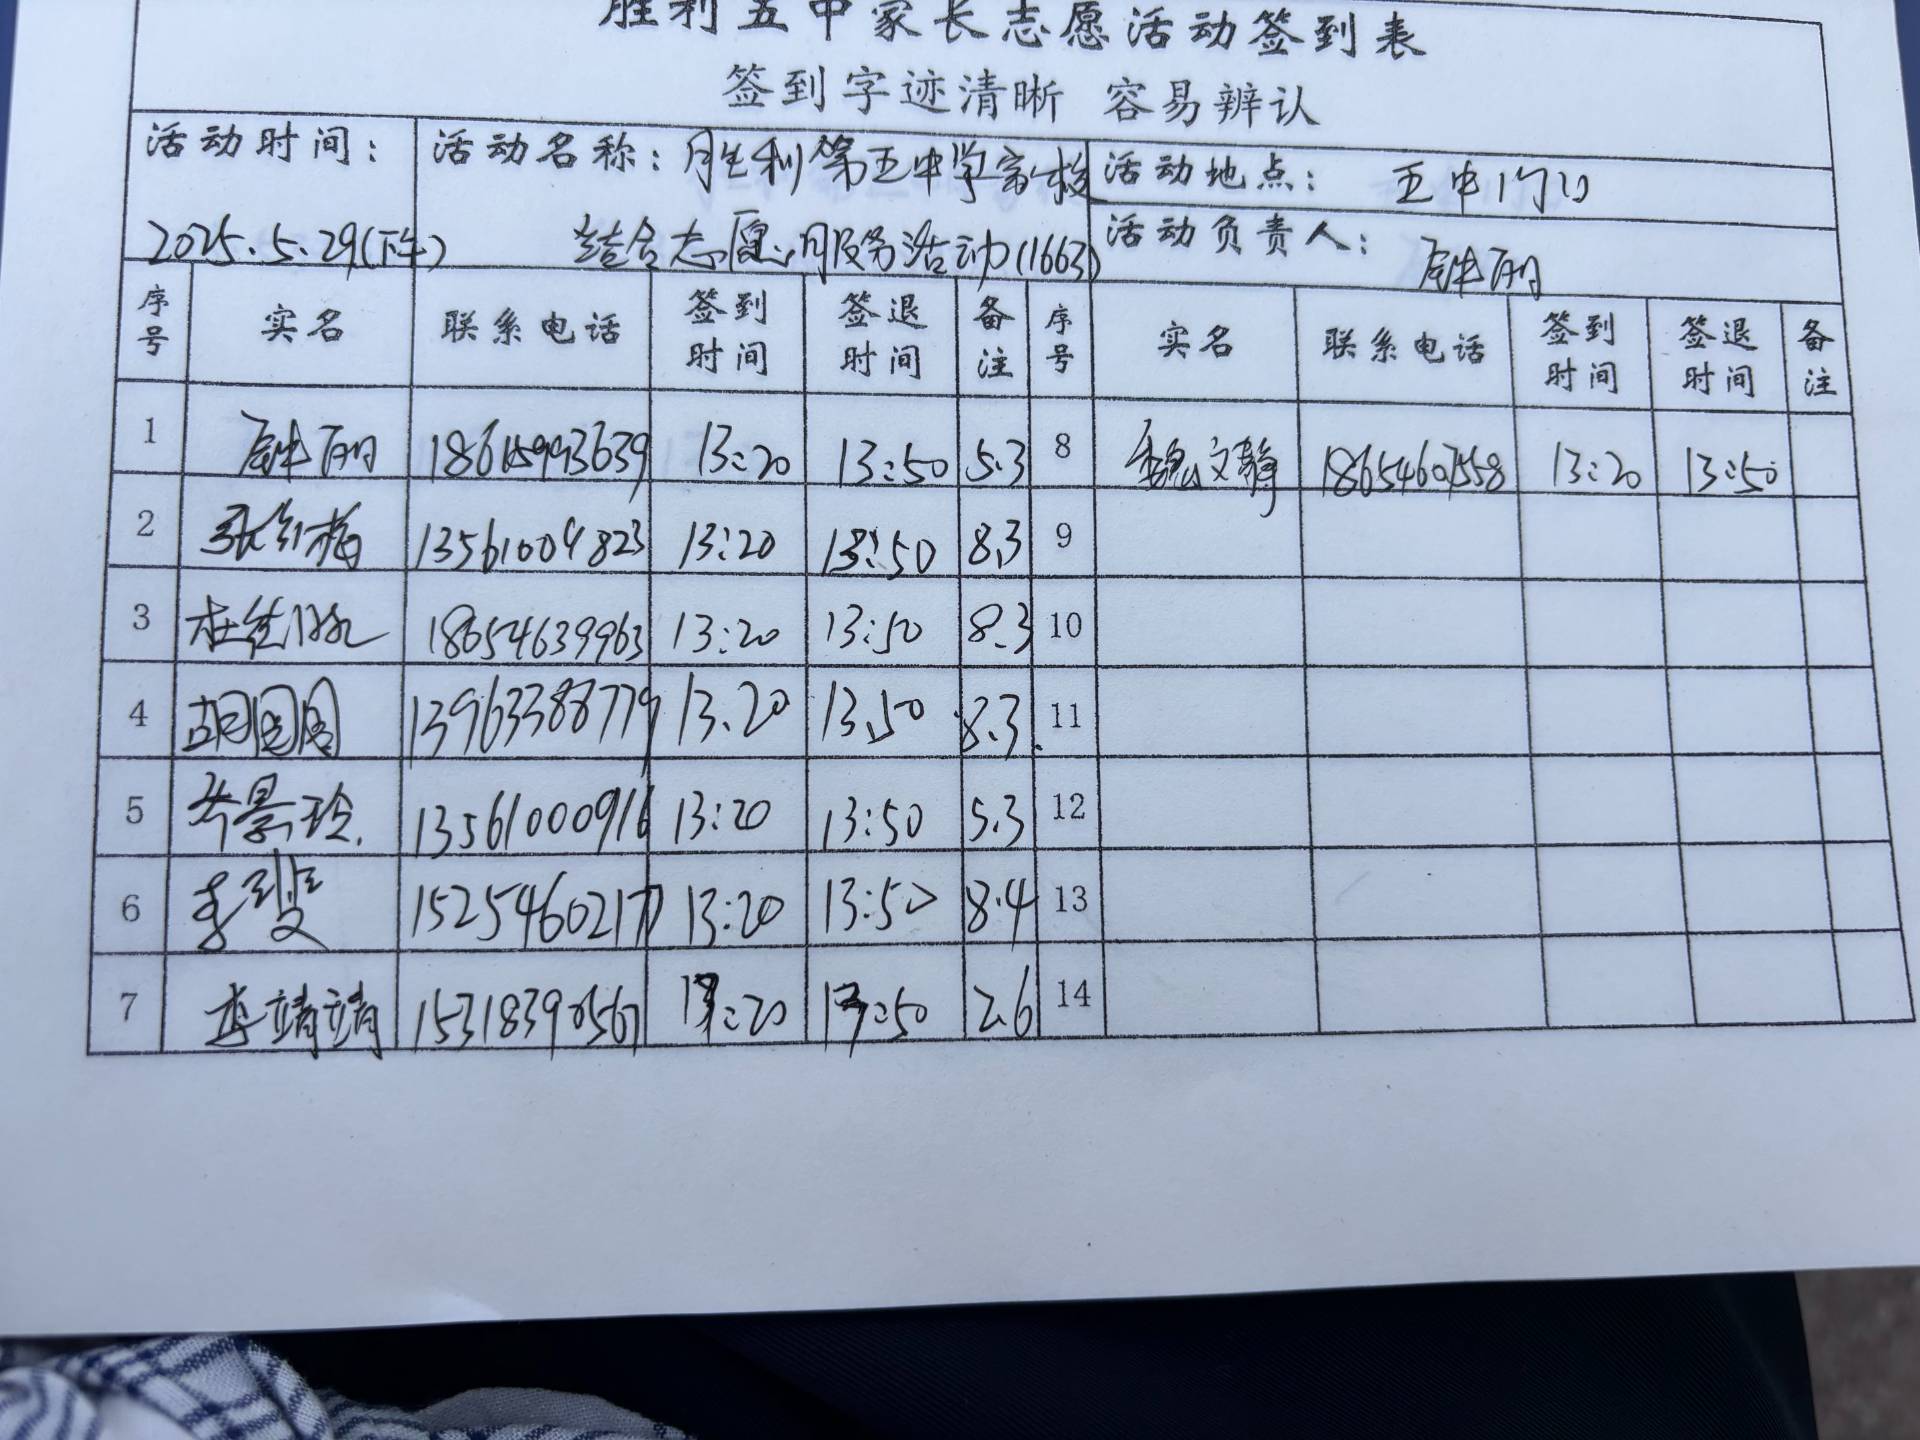 胜利五中家长志愿活动签到表
签到字迹清晰 容易辨认
活动时间: 2025.5.29(下午)
活动名称: 胜利第五中学家校
结合志愿服务活动(1663)
活动地点: 五中门口
活动负责人:
序号 实名 联系电话 签到时间 签退时间 备注 序号 实名 联系电话 签到时间 签退时间 备注
1 18615993639 13:20 13:50 5.3 8 魏文静 18654607558 13:20 13:50
2 张红梅 13561004823 13:20 13:50 8.3 9
3 18654639963 13:20 13:50 8.3 10
4 胡园园 13963388779 13.20 13.50 8.3. 11
5 景玲. 13561000916 13:20 13:50 5.3 12
6 李斐 15254602177 13:20 13:50 8.4 13
7 李靖靖 15318390567 13:20 13:50 2.6 14